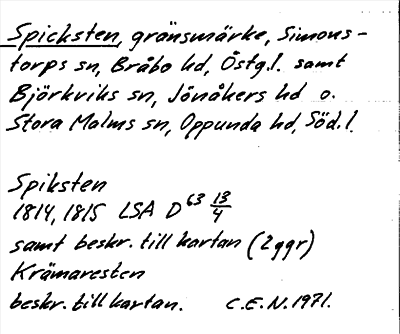 Spicksten, gränsmärke, Simons-
torps sn, Bråbo hd, Östg.l. samt
Björkviks sn, Jönåkers hd o.
Stora Malms sn, Oppunda hd, Söd.l.
Spiksten
1814, 1815 LSA D 63 13/4
samt beskr. till kartan (2 ggr)
Krämaresten
beskr. till kartan. C.E.N. 1971.